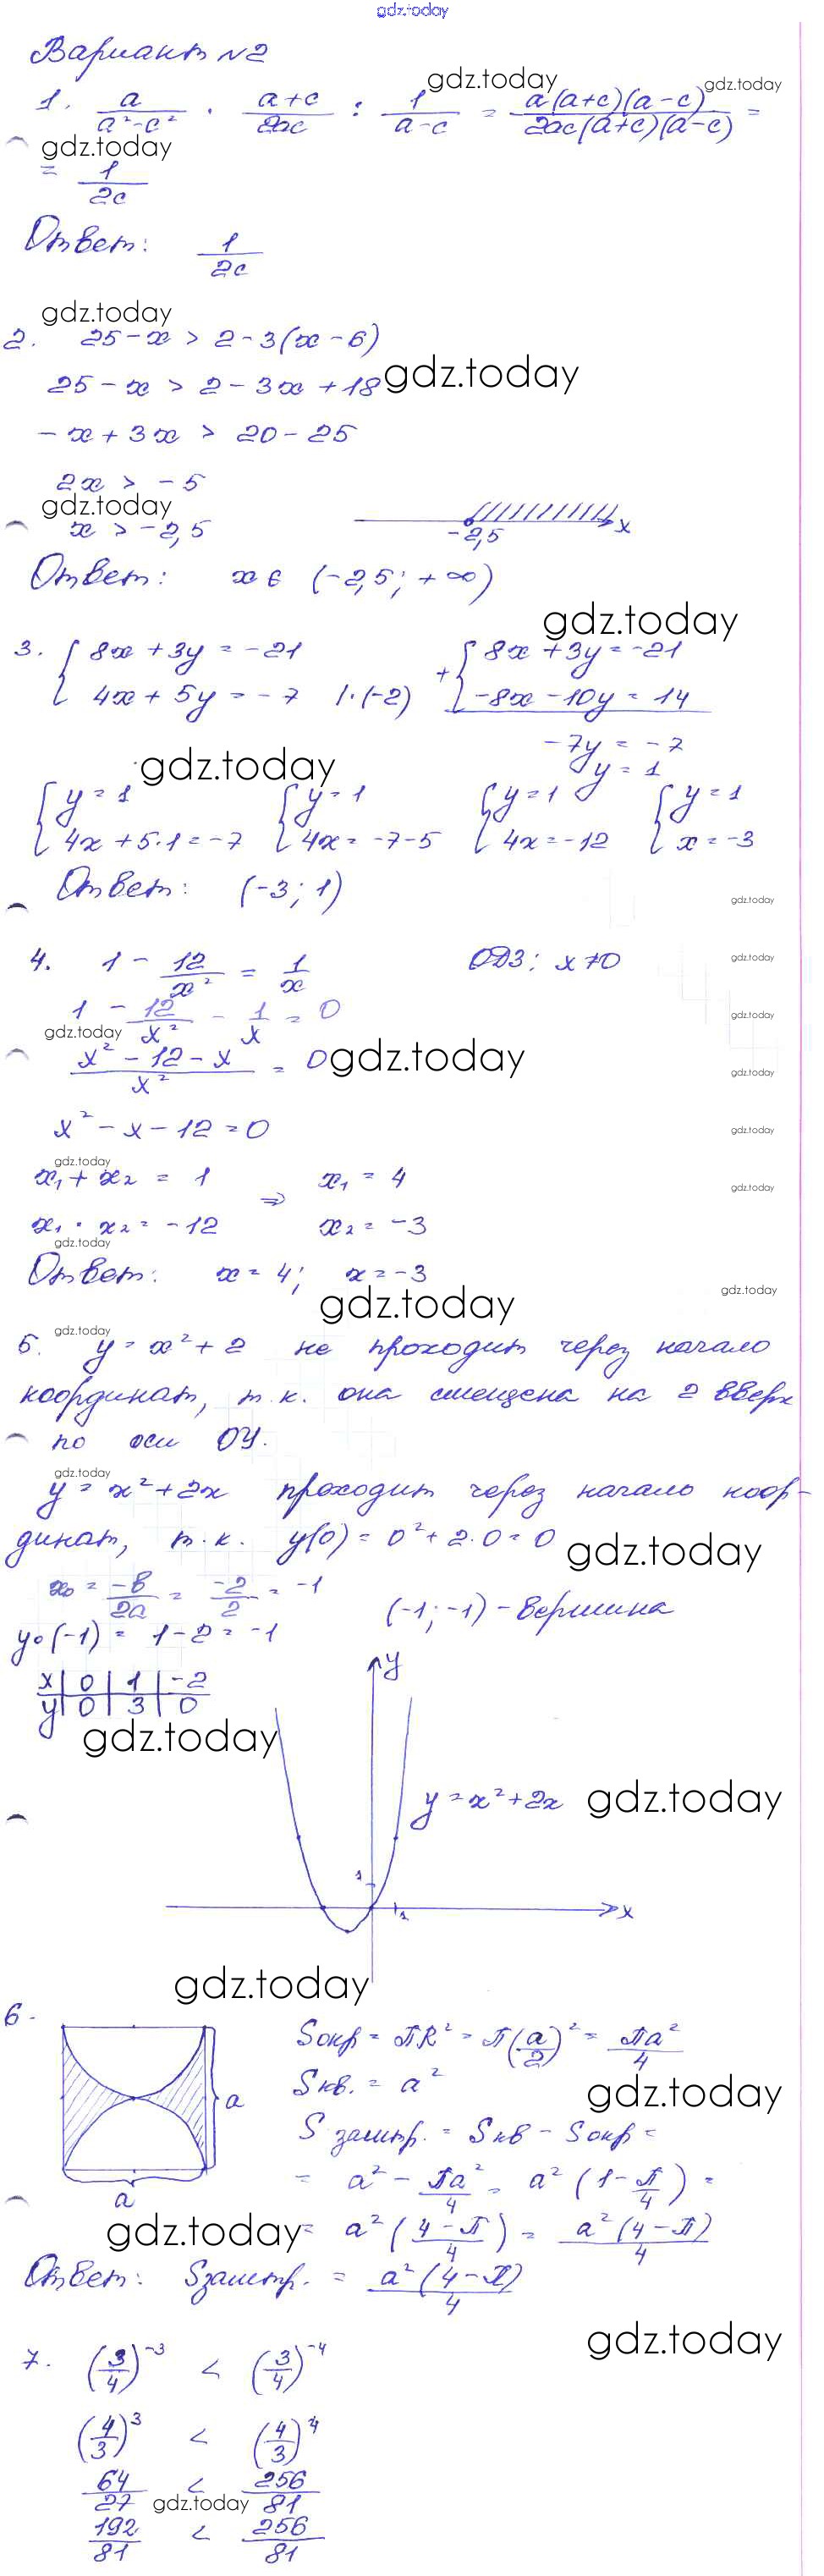 gdz.today
Вариант №2
gdz.today
gdz.today
1. a/(a²-c²) · (a+c)/(2ac) : 1/(a-c) = a(a+c)(a-c)/(2ac(a+c)(a-c)) =
gdz.today
= 1/(2c)
Ответ: 1/(2c)
gdz.today
2. 25-x > 2-3(x-6)
25-x > 2-3x+18
gdz.today
-x+3x > 20-25
2x > -5
gdz.today
x > -2,5
-2,5 x
Ответ: x ∈ (-2,5; +∞)
gdz.today
3. { 8x+3y=-21 + { 8x+3y=-21
4x+5y=-7 |·(-2) -8x-10y=14
-7y=-7
gdz.today
y=1
{ y=1 { y=1 { y=1 { y=1
4x+5·1=-7 4x=-7-5 4x=-12 x=-3
Ответ: (-3; 1)
gdz.today
4. 1 - 12/x² = 1/x ОДЗ: x≠0
gdz.today
1 - 12/x² - 1/x = 0
gdz.today
gdz.today
(x²-12-x)/x² = 0
gdz.today
gdz.today
x²-x-12=0
gdz.today
gdz.today
x₁+x₂=1 ⇒ x₁=4
gdz.today
x₁·x₂=-12 x₂=-3
gdz.today
Ответ: x=4; x=-3
gdz.today
gdz.today
gdz.today
5. y=x²+2 не проходит через начало
координат, т.к. она смещена на 2 вверх
по оси OY.
gdz.today
y=x²+2x проходит через начало коор-
динат, т.к. y(0)=0²+2·0=0
gdz.today
x₀ = -b/2a = -2/2 = -1
(-1; -1) - вершина
y₀(-1) = 1-2 = -1
x | 0 | 1 | -2
y | 0 | 3 | 0
y
gdz.today
y=x²+2x
gdz.today
1
1
x
gdz.today
6.
Sокр = πR² = π(a/2)² = πa²/4
Sкв. = a²
gdz.today
a
S заштр. = Sкв - Sокр =
= a² - πa²/4 = a²(1-π/4) =
a
gdz.today
= a²((4-π)/4) = a²(4-π)/4
Ответ: Sзаштр. = a²(4-π)/4
gdz.today
7. (3/4)⁻³ < (3/4)⁻⁴
(4/3)³ < (4/3)⁴
64/27 < 256/81
gdz.today
192/81 < 256/81